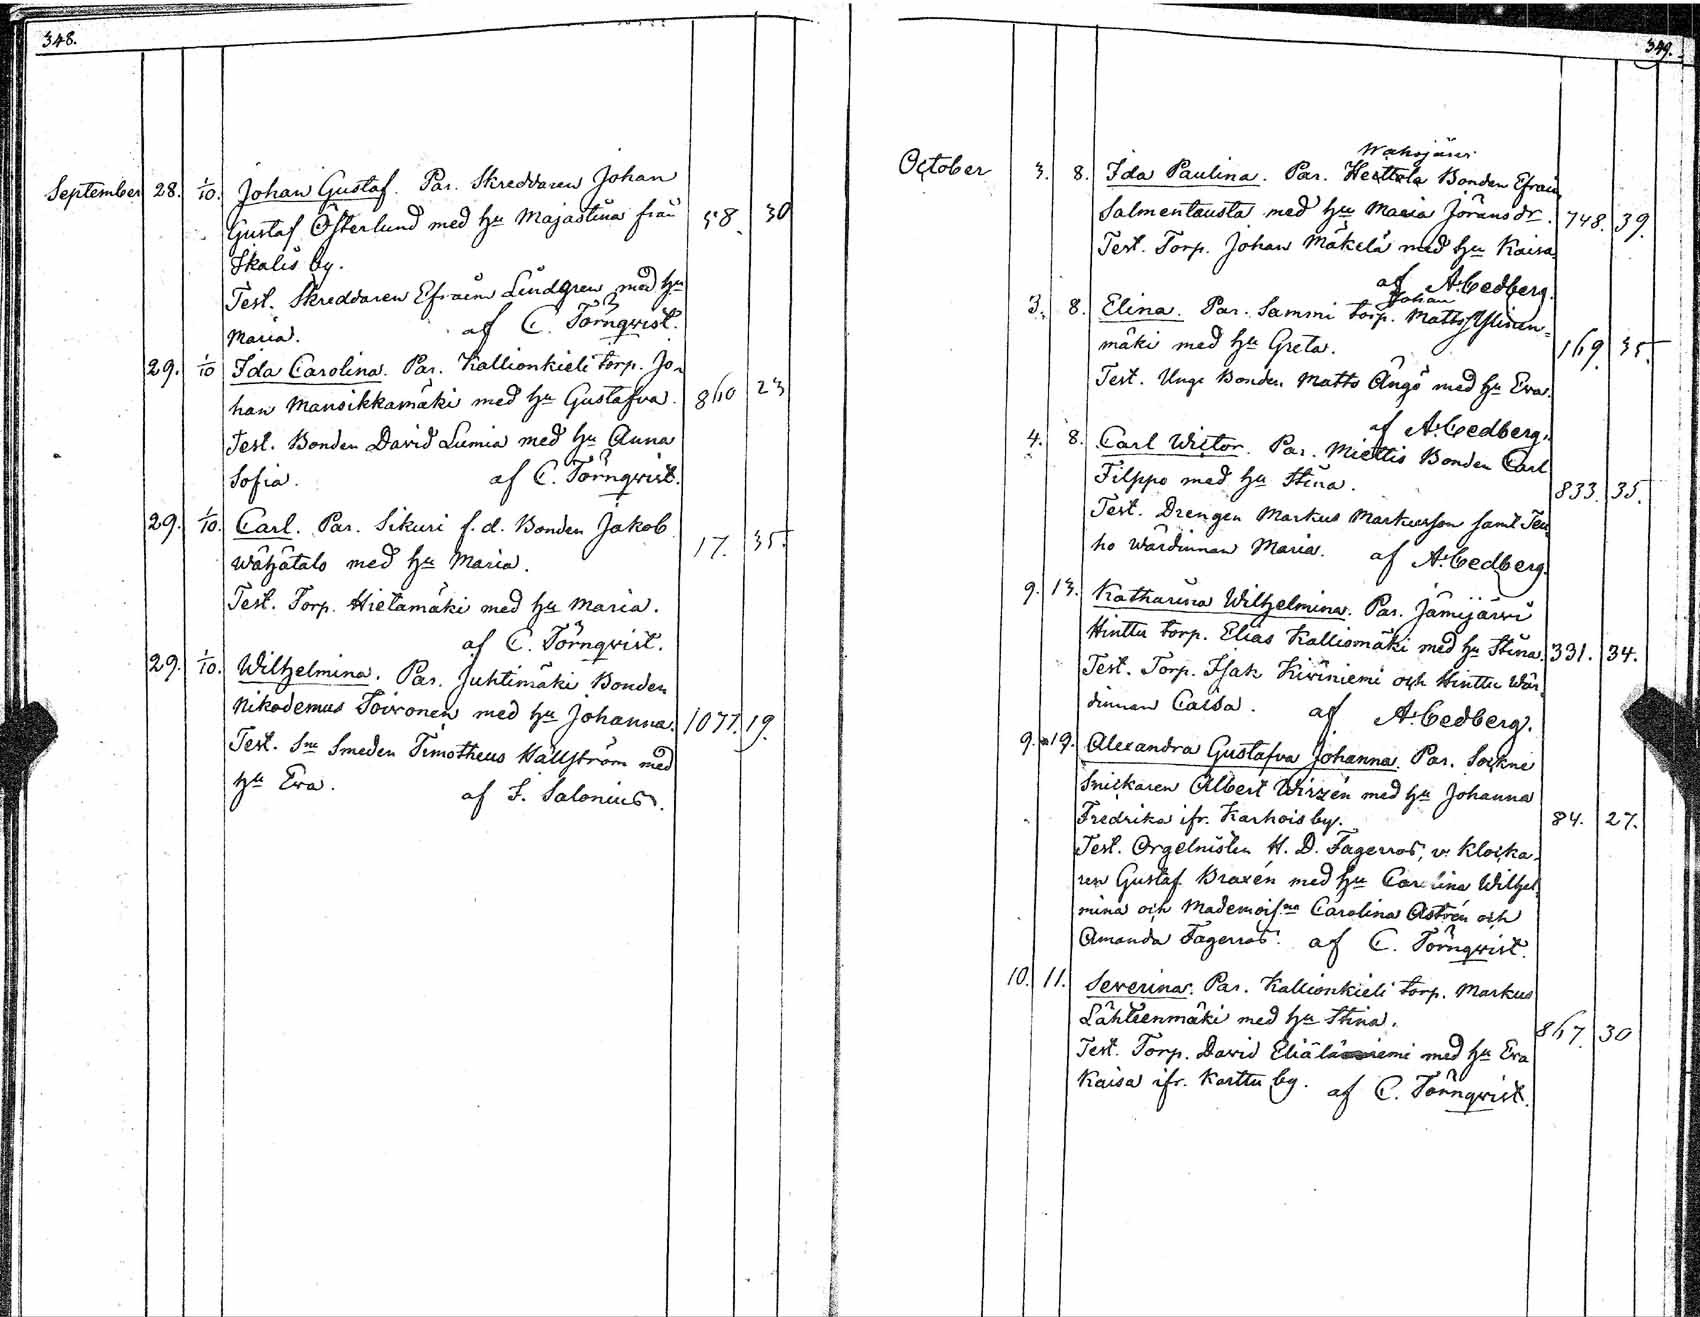 348.
September 28. 1/10. Johan Gustaf. Par. Skreddaren Johan
Gustaf Österlund med hu Majastina från 58. 30
Skalis by.
Test. Skreddaren Efraim Lindgren med hu
Maria. af C. Törnqvist.
29. 1/10 Ida Carolina. Par. Kallionkieli torp. Jo-
han Mansikkamäki med hu Gustafva. 860 23
Test. Bonden David Lumia med hu Anna
Sofia. af C. Törnqvist.
29. 1/10. Carl. Par. Sikuri f.d. Bonden Jakob
Wähätalo med hu Maria. 17. 35.
Test. Torp. Hietamäki med hu Maria.
af C. Törnqvist.
29. 1/10. Wilhelmina. Par. Juhtimäki Bonden
Nikodemus Toivonen med hu Johanna. 1077. 19.
Test. Sne Smeden Timotheus Hällström med
hu Eva. af F. Salonius.
349.
Wahojärvi
October 3. 8. Ida Paulina. Par. Heittola Bonden Efraim
Salmentausta med hu Maria Jöransdr. 748. 39.
Test. Torp. Johan Mäkelä med hu Kaisa.
af A. Cedberg.
Johan
3. 8. Elina. Par. Sammi torp. Matts Ylinen-
mäki med hu Greta. 169. 35.
Test. Unge Bonden Matts Ängö med hu Eva.
af A. Cedberg.
4. 8. Carl Wictor. Par. Miettis Bonden Carl
Filppo med hu Stina. 833. 35.
Test. Drengen Markus Markusson samt Teu-
ho Wärdinnan Maria. af A. Cedberg.
9. 13. Katharina Wilhelmina. Par. Jämijärvi
Hinttu torp. Elias Kalliomäki med hu Stina. 331. 34.
Test. Torp. Isak Kiviniemi och Hinttu Wär-
dinnan Caisa. af A. Cedberg.
9. 19. Alexandra Gustafva Johanna. Par. Sockne
Snickaren Albert Wirzén med hu Johanna
Fredrika ifr. Karhois by. 84. 27.
Test. Orgelnisten H. D. Fagerros, v. Klocka-
ren Gustaf Braxén med hu Carolina Wilhel
mina och Mademois.na Carolina Astrén och
Amanda Fagerros. af C. Törnqvist.
10. 11. Severina. Par. Kallionkieli torp. Markus
Lähteenmäki med hu Stina. 867. 30
Test. Torp. David med hu Eva
Kaisa ifr. Karttu by. af C. Törnqvist.